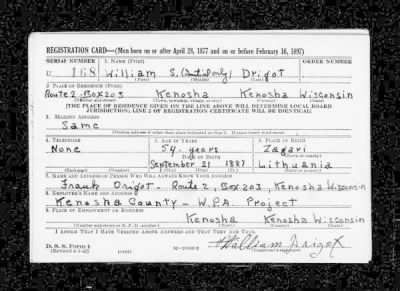 REGISTRATION CARD—(Men born on or after April 28, 1877 and on or before February 16, 1897)
SERIAL NUMBER 1. NAME (Print) ORDER NUMBER
U 168 William S. (Initial only) Drigot
(First) (Middle) (Last)
2. PLACE OF RESIDENCE (Print)
Route 2, Box 203 Kenosha Kenosha Wisconsin
(Number and street) (Town, township, village, or city) (County) (State)
[THE PLACE OF RESIDENCE GIVEN ON THE LINE ABOVE WILL DETERMINE LOCAL BOARD
JURISDICTION; LINE 2 OF REGISTRATION CERTIFICATE WILL BE IDENTICAL]
3. MAILING ADDRESS
Same
[Mailing address if other than place indicated on line 2. If same insert word same]
4. TELEPHONE 5. AGE IN YEARS 6. PLACE OF BIRTH
None 54 - years Zagari
DATE OF BIRTH (Town or county)
September 21 1887 Lithuania
(Exchange) (Number) (Mo.) (Day) (Yr.) (State or country)
7. NAME AND ADDRESS OF PERSON WHO WILL ALWAYS KNOW YOUR ADDRESS
Frank Drigot - Route 2, Box 203, Kenosha Wisconsin
8. EMPLOYER'S NAME AND ADDRESS
Kenosha County - W.P.A. Project
9. PLACE OF EMPLOYMENT OR BUSINESS
Kenosha Kenosha Wisconsin
(Number and street or R. F. D. number) (Town) (County) (State)
I AFFIRM THAT I HAVE VERIFIED ABOVE ANSWERS AND THAT THEY ARE TRUE.
D. S. S. Form 1
(Revised 4-1-42) (over) William Drigot
(Registrant's signature)